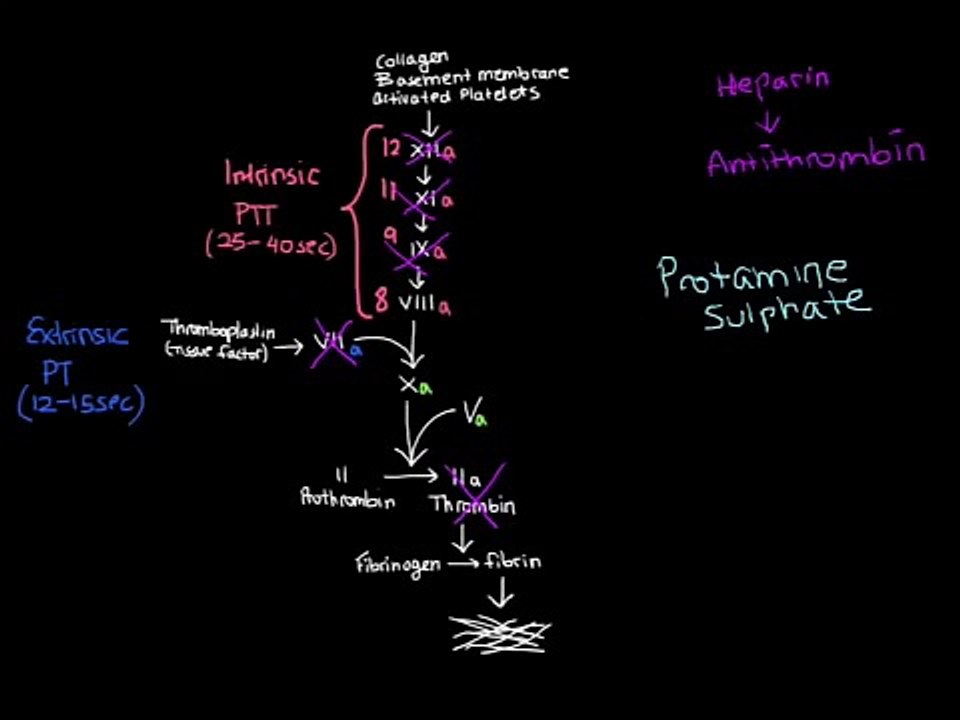 Collagen
Basement membrane
activated Platelets
Heparin
Antithrombin
12 XIIa
11 XIa
9 IXa
8 VIIIa
Intrinsic
PTT
(25-40sec)
Protamine
Sulphate
Extrinsic
PT
(12-15sec)
Thromboplastin
(tissue factor)
VIIa
Xa
Va
II
Prothrombin
IIa
Thrombin
Fibrinogen
fibrin